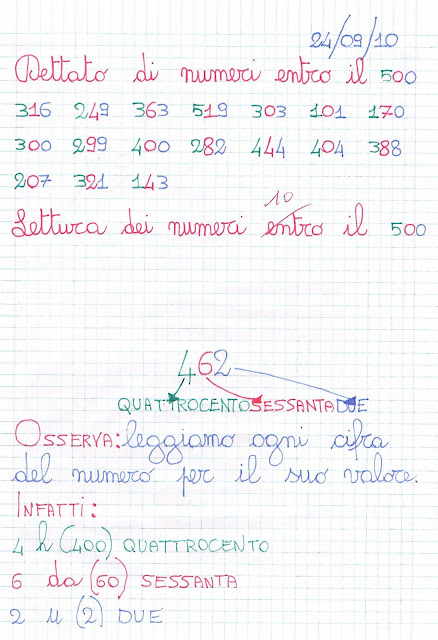 24/09/10
Dettato di numeri entro il 500
316 249 363 519 303 101 170
300 299 400 282 444 404 388
207 321 143
10
Lettura dei numeri entro il 500
462
QUATTROCENTOSESSANTADUE
OSSERVA: leggiamo ogni cifra
del numero per il suo valore.
INFATTI:
4 h (400) QUATTROCENTO
6 da (60) SESSANTA
2 u (2) DUE